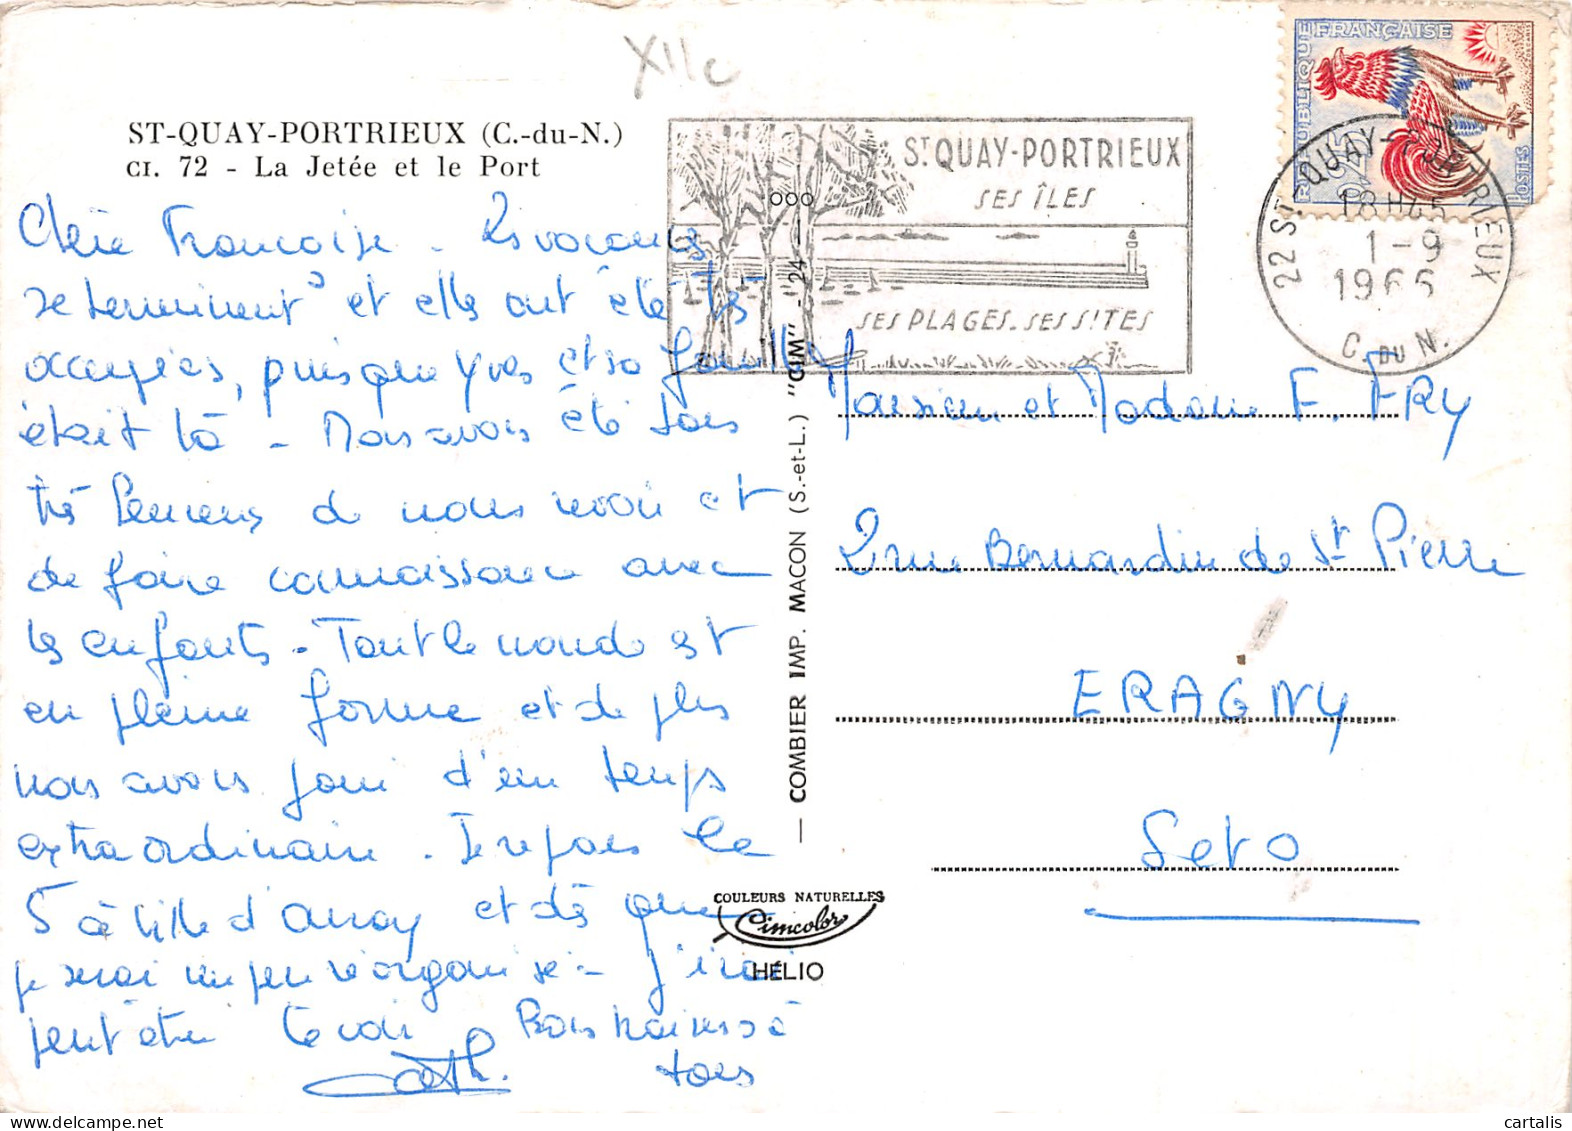 XIIc
ST-QUAY-PORTRIEUX (C.-du-N.)
CI. 72 - La Jetée et le Port
Chère Françoise - Les vacances
se terminent et elles ont été très
occupées, puisque Yves et sa famille
était là - Nous avons été tous
très heureux de nous revoir et
de faire connaissance avec
les enfants - Tout le monde est
en pleine forme et de plus
nous avons joui d'un temps
extraordinaire. Je repars le
5 à Ville d'Avray et dès que
je serai un peu réorganisée - j'irai
peut être te voir Bons baisers à
tous
Cath.
COMBIER IMP. MACON (S.-et-L.) "CIM" - 24 -
COULEURS NATURELLES
Cimcolor
HÉLIO
ST QUAY-PORTRIEUX
SES ÎLES
SES PLAGES. SES SITES
RÉPUBLIQUE FRANÇAISE
0,25
POSTES
22 ST-QUAY-PORTRIEUX
18H45
1-9
1966
C. DU N.
Monsieur et Madame F. FRY
2 rue Bernardin de St Pierre
ERAGNY
Set O
cartalis